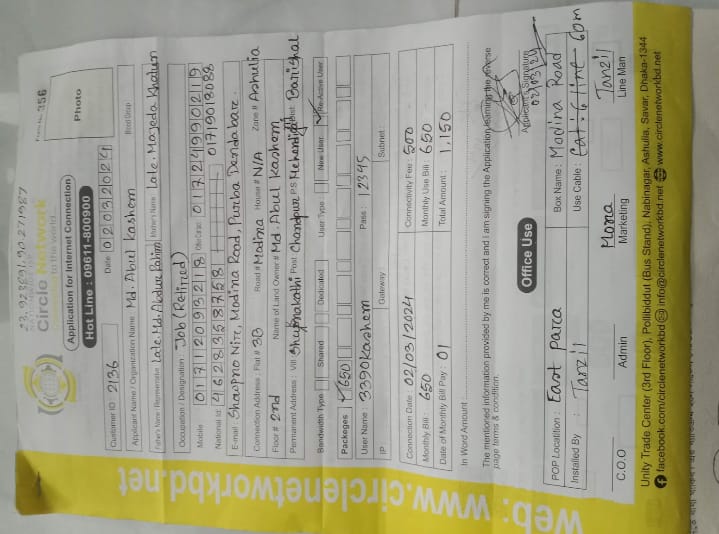 23.92389, 90.271987
Form No. 356
Circle Network
to the world...
Application for Internet Connection
Hot Line : 09611-800900
Photo
Customer ID 2136 Date 02032024
Applicant Name / Organization Name Md. Abul kashem Blood Group
Father's Name / Representative Late. Md. Abdur Rahim Mother's Name Late. Majeda Khatun
Occupation / Designation : Job (Retired)
Mobile 01711209321 Other Contact 01724990219
National Id: 4628358758 01719018088
E-mail : Shapno Nir, Modina Road, Purba Dendabar.
Connection Address : Flat # 3B Road # Modina House # N/A Zone # Ashulia
Floor # 2nd Name of Land Owner # Md. Abul Kashem
Permanent Address : Vill Post Chandpur P.S Mehendigonj Dist Barishal
Bandwidth Type Shared Dedicated User Type New User Re-Active User
Packeges 650
User Name : 3390kashem Pass : 12345
IP Gateway Subnet
Connection Date : 02/03/2024 Connectivity Fee : 500
Monthly Bill : 650 Monthly Use Bill : 650
Date of Monthly Bill Pay : 01 Total Amount : 1,150
In Word Amount
The mentioned information provided by me is correct and I am signing the Application learning the reverse
page terms & condition.
02/03/24
Applicant's Signature
Office Use
POP Locatition : East Parca Box Name : Modina Road
Installed By : Tanzil Use Cable : Cat:6 line - 60m
Mona Tanzil
C.O.O Admin Marketing Line Man
Unity Trade Center (3rd Floor), Pollibiddut (Bus Stand), Nabinagar, Ashulia, Savar, Dhaka-1344
facebook.com/circlenetworkbd info@circlenetworkbd.net www.circlenetworkbd.net
web: www.circlenetworkbd.net